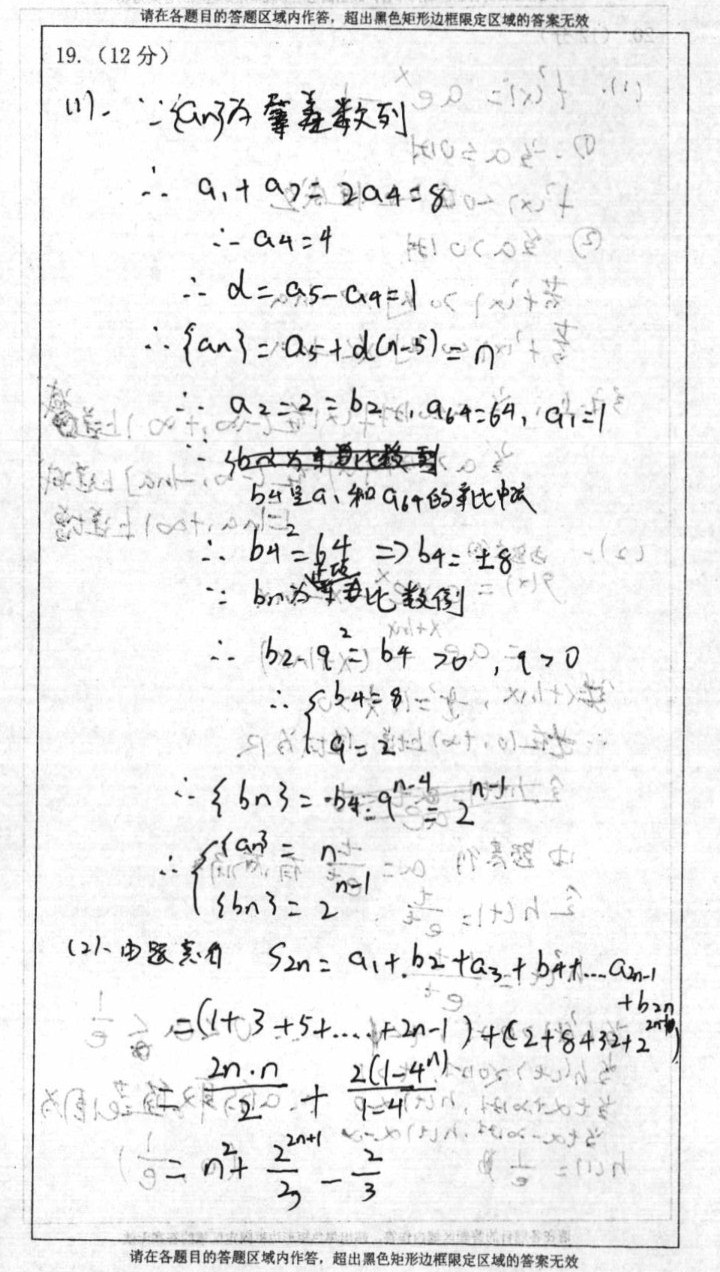 请在各题目的答题区域内作答，超出黑色矩形边框限定区域的答案无效
19.（12分）
(1)、∵{an}为等差数列
∴ a1+a7=2a4=8
∴ a4=4
∴ d=a5-a4=1
∴ {an}=a5+d(n-5)=n
∴ a2=2=b2，a64=64，a1=1
b4是a1和a64的等比中项
∴ b4²=64 => b4=±8
∵ bn为等比数例
∴ b2·q²=b4>0，q>0
∴ {b4=8
q=2
∴ {bn}=b4·q^(n-4)=2^(n-1)
∴ {{an}=n
{bn}=2^(n-1)
(2)、由题意有 S2n=a1+b2+a3+b4+...a2n-1
+b2n
=(1+3+5+...+2n-1)+(2+8+32+2^(2n-1))
=2n·n/2+2(1-4^n)/1-4
=n²+2^(2n+1)/3-2/3
请在各题目的答题区域内作答，超出黑色矩形边框限定区域的答案无效